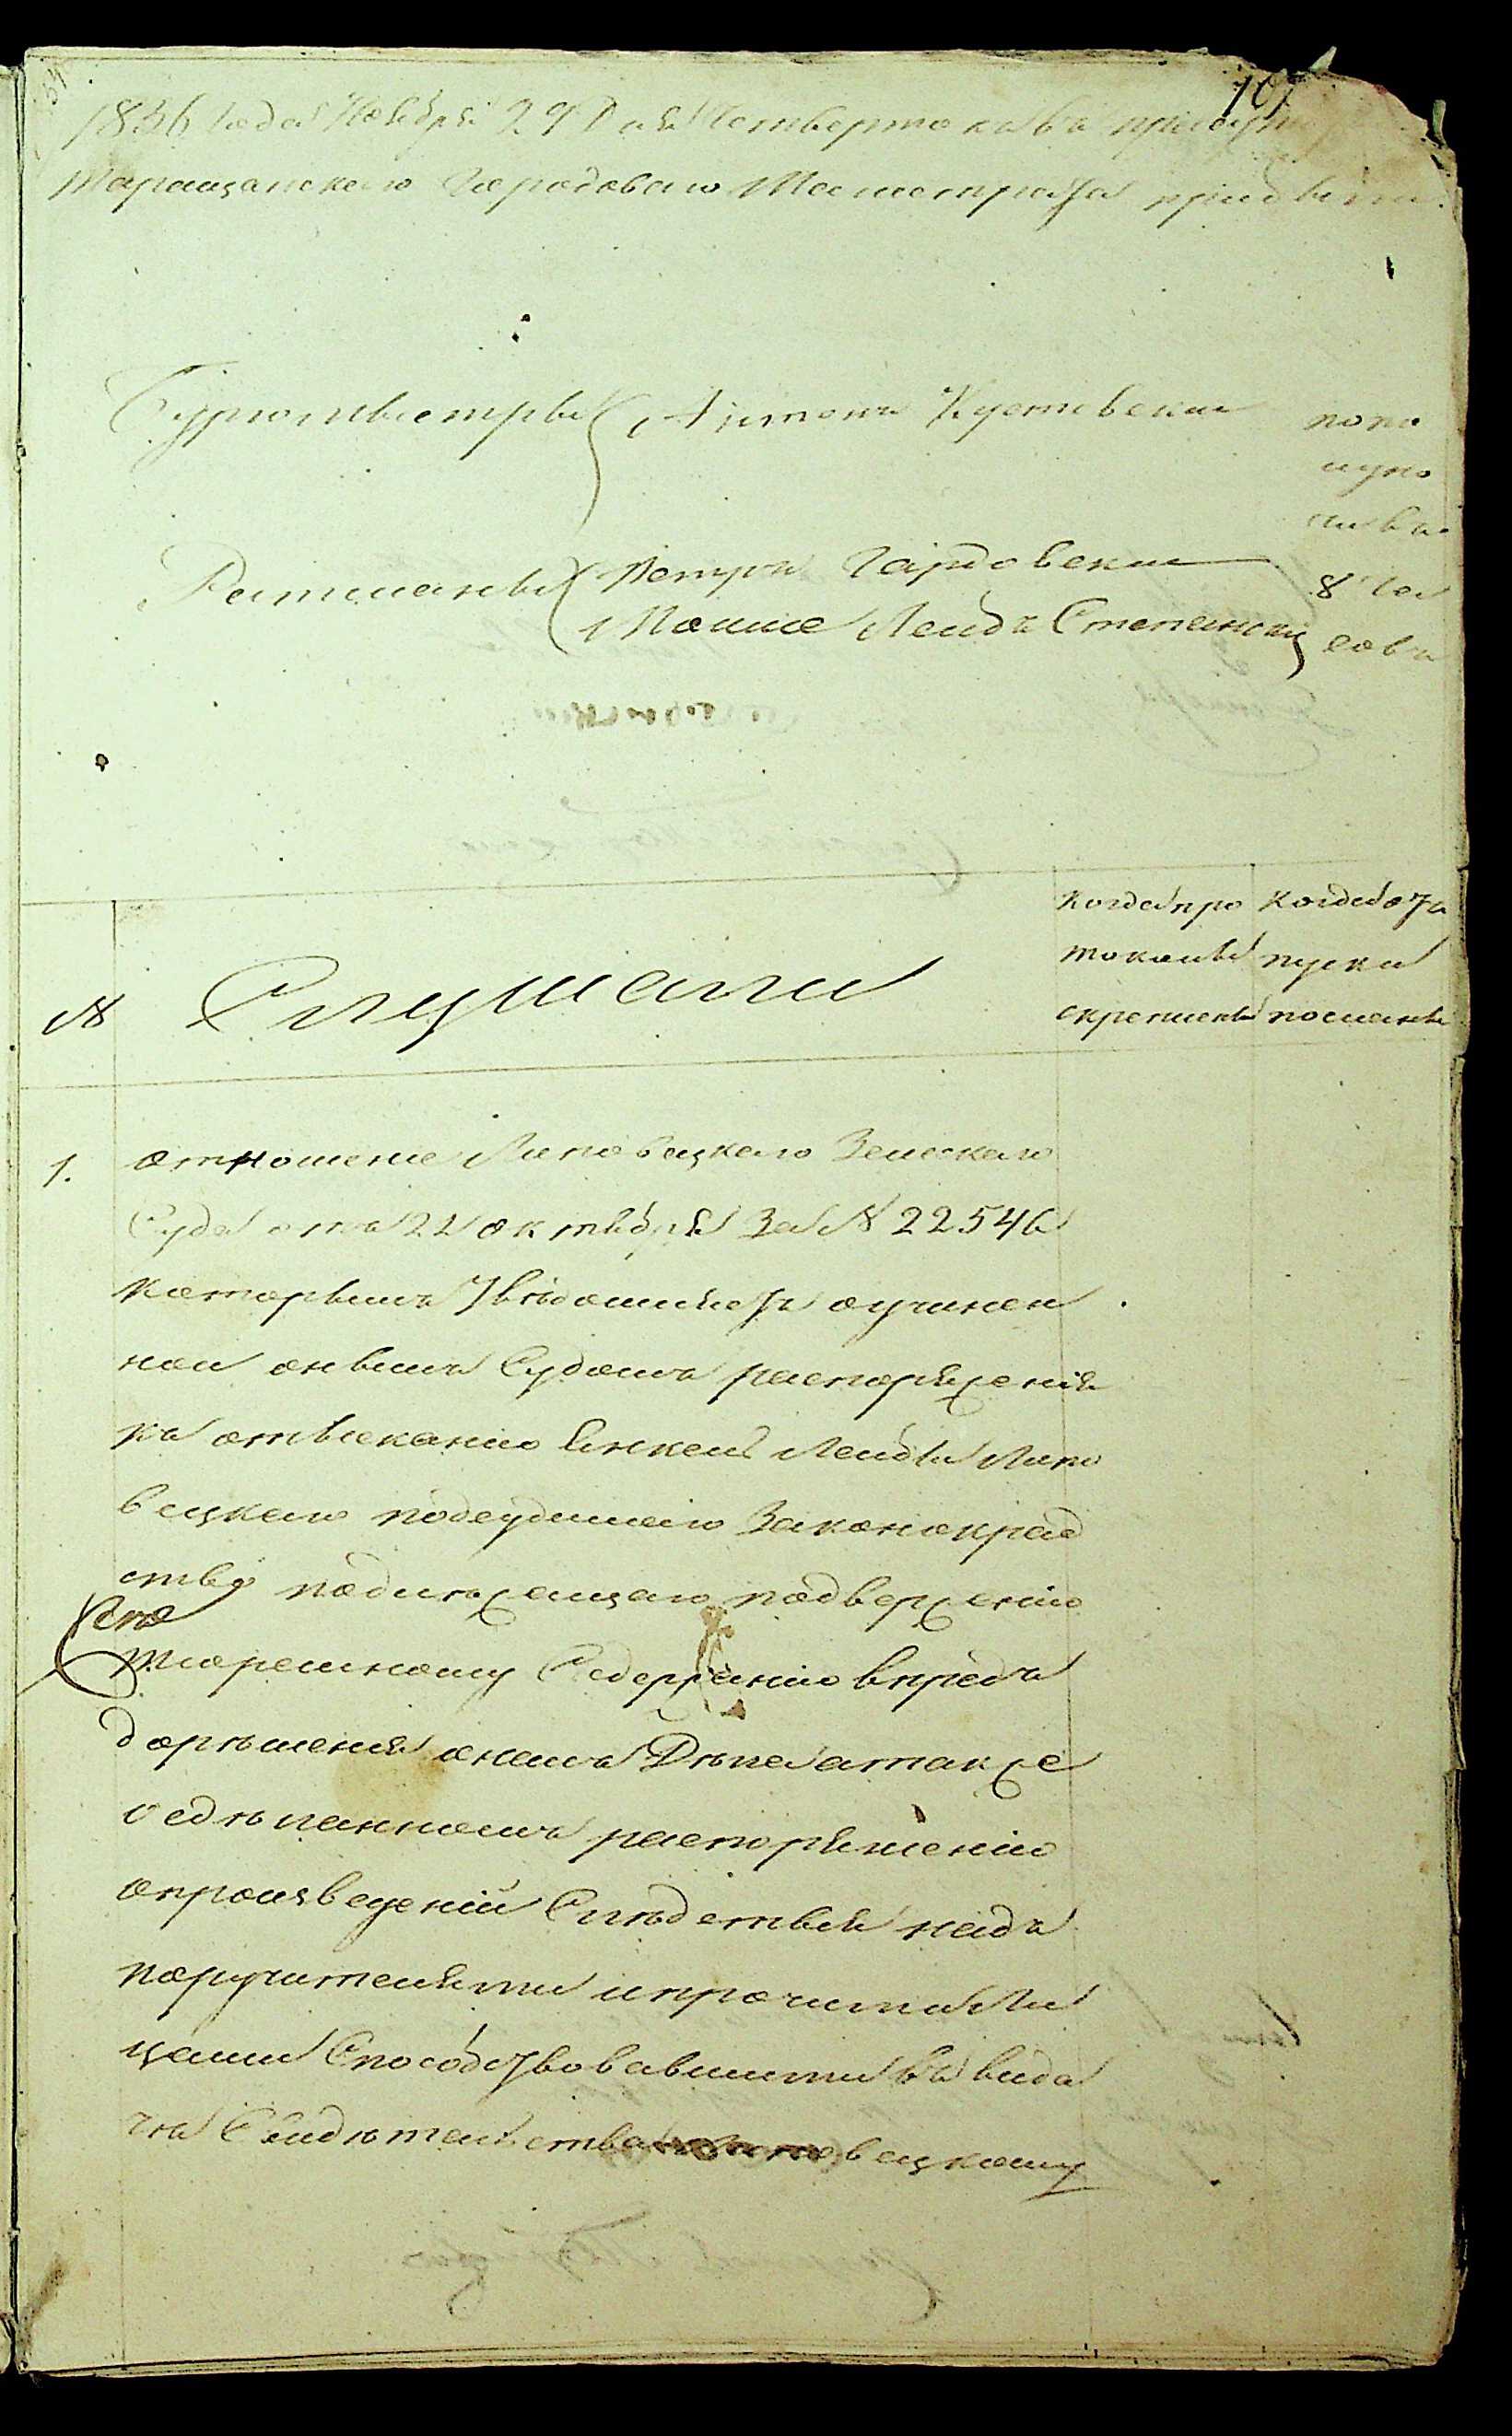 107
1836 года Ноября 29 Дня Четвертокъ въ присутст
Таращанского Городоваго Магистрата прибыли.
Бургомистры Антонъ Кустовски
Ратманы Петръ Гайдовски
Мошко Лейбъ Степански
попо
луно
чи въ
8 Ча
совъ
№
Слушали
когда про
токолы
скреплены
когда от
пуски
посланы
1.
отношение Липовецкаго Земскаго
Суда отъ 22 октября За № 22546
которымъ Уведомляетъ оучинен
ном онымъ Судомъ распоряжения
къ отысканию Янкеля Лейбы Липо
вецкаго подсудимаго За
ству подлежащаго подвержению
Тюремному Содержанию впредъ
дорешения онаго Дела атакже
осделанномъ распоряжению
опроизведений Следствия надъ
поручителями ипрочими Ли
цами Способствовавшими въ выда
чи Свидетельства вецкому